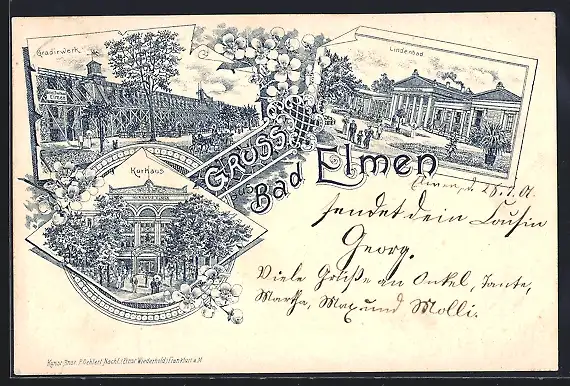 Gradirwerk
Lindenbad
Kurhaus
GRUSS
Bad Elmen
Elmen
sendet dein Cousin
Georg.
Viele Grüße an Onkel, Tante,
Martha, Max und Molli.
Kunst-Anst. Nachf. Ernst Wiederhold, Frankfurt a. M